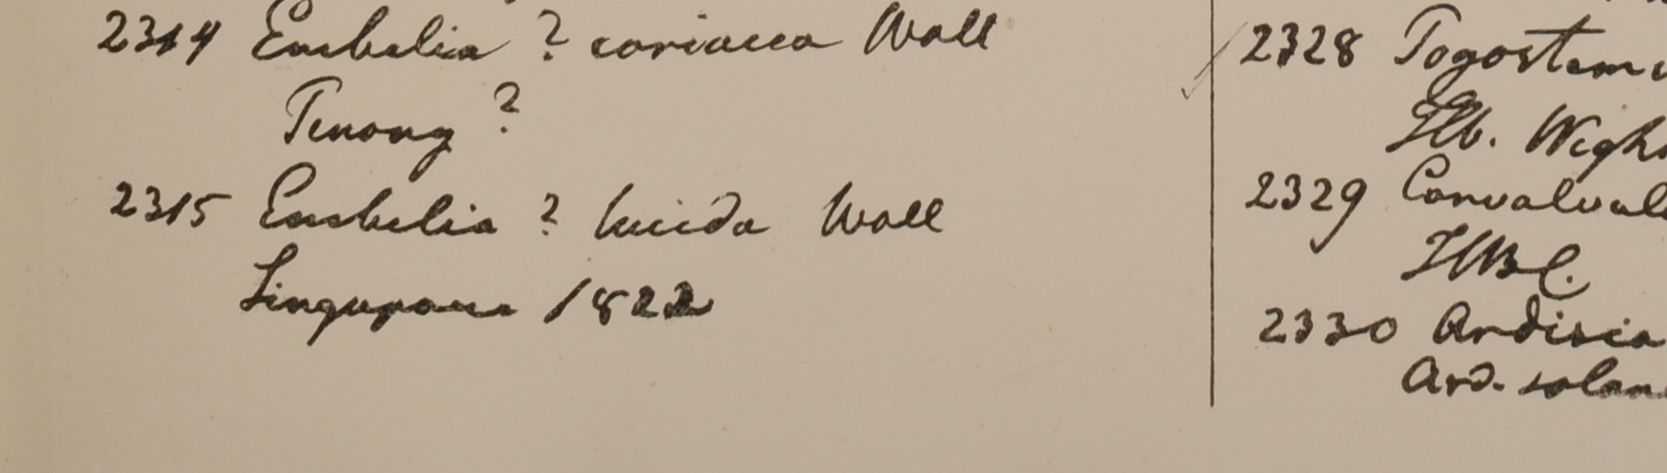 2314 Embelia ? coriacea Wall
Penang ?
2315 Embelia ? lucida Wall
Singapore 1822
2328 Pogostem
Hb. Wigh
2329 Convolvul
HBC.
2330 Ardisia
Ard. solan